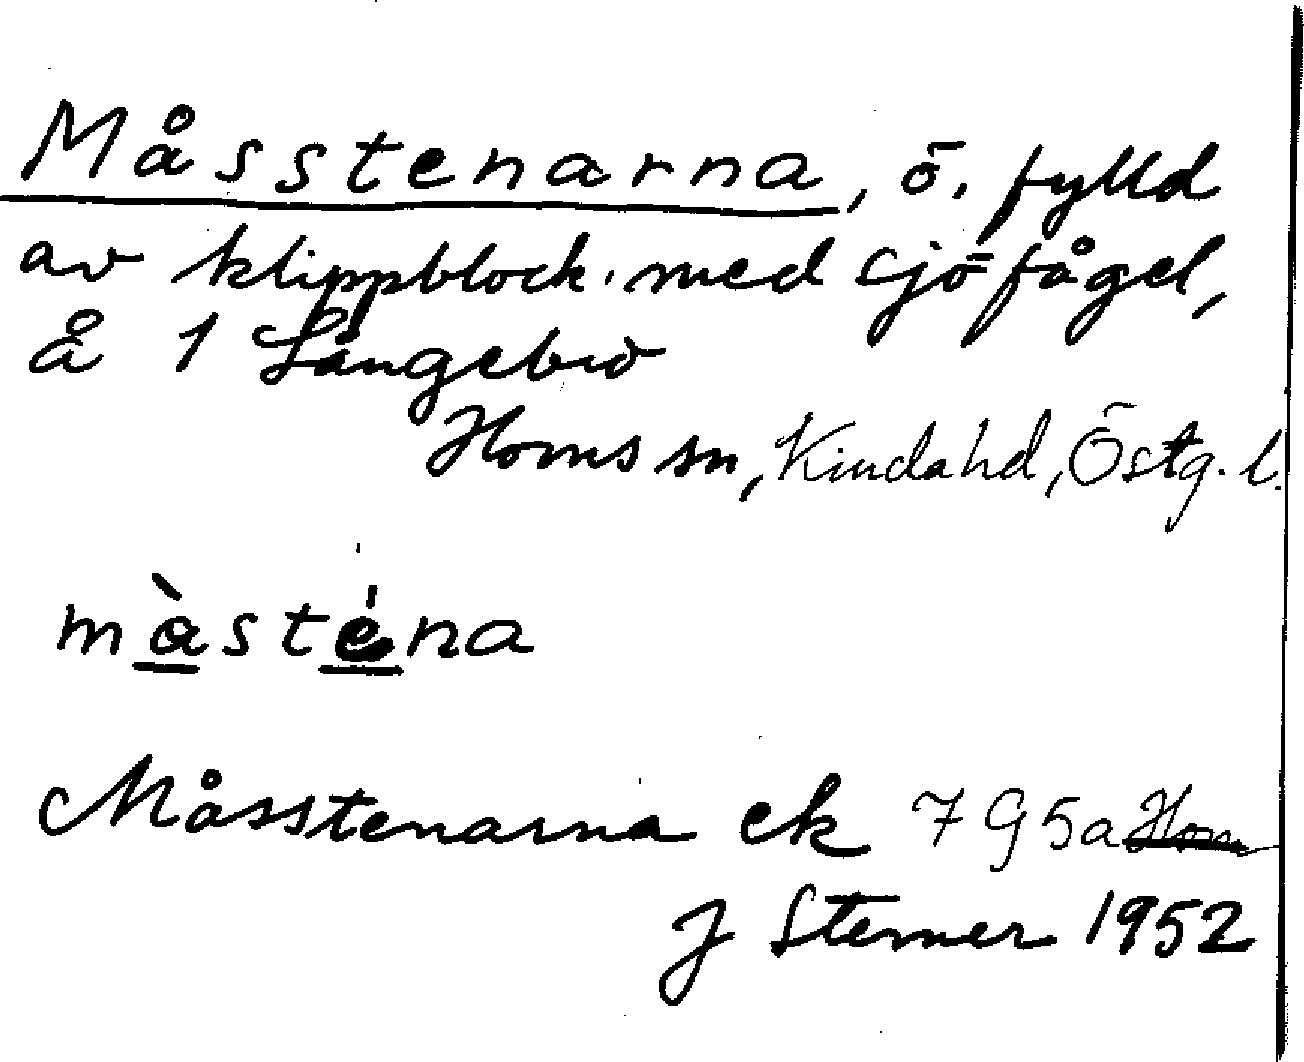 Måsstenarna, ö. fylld
av klippblock. med sjöfågel,
Å 1 Långebro
Horns sn, Kinda hd, Östg. l.
màsténa
Måsstenarna ek 7 G 5a Horn
J Sterner 1952